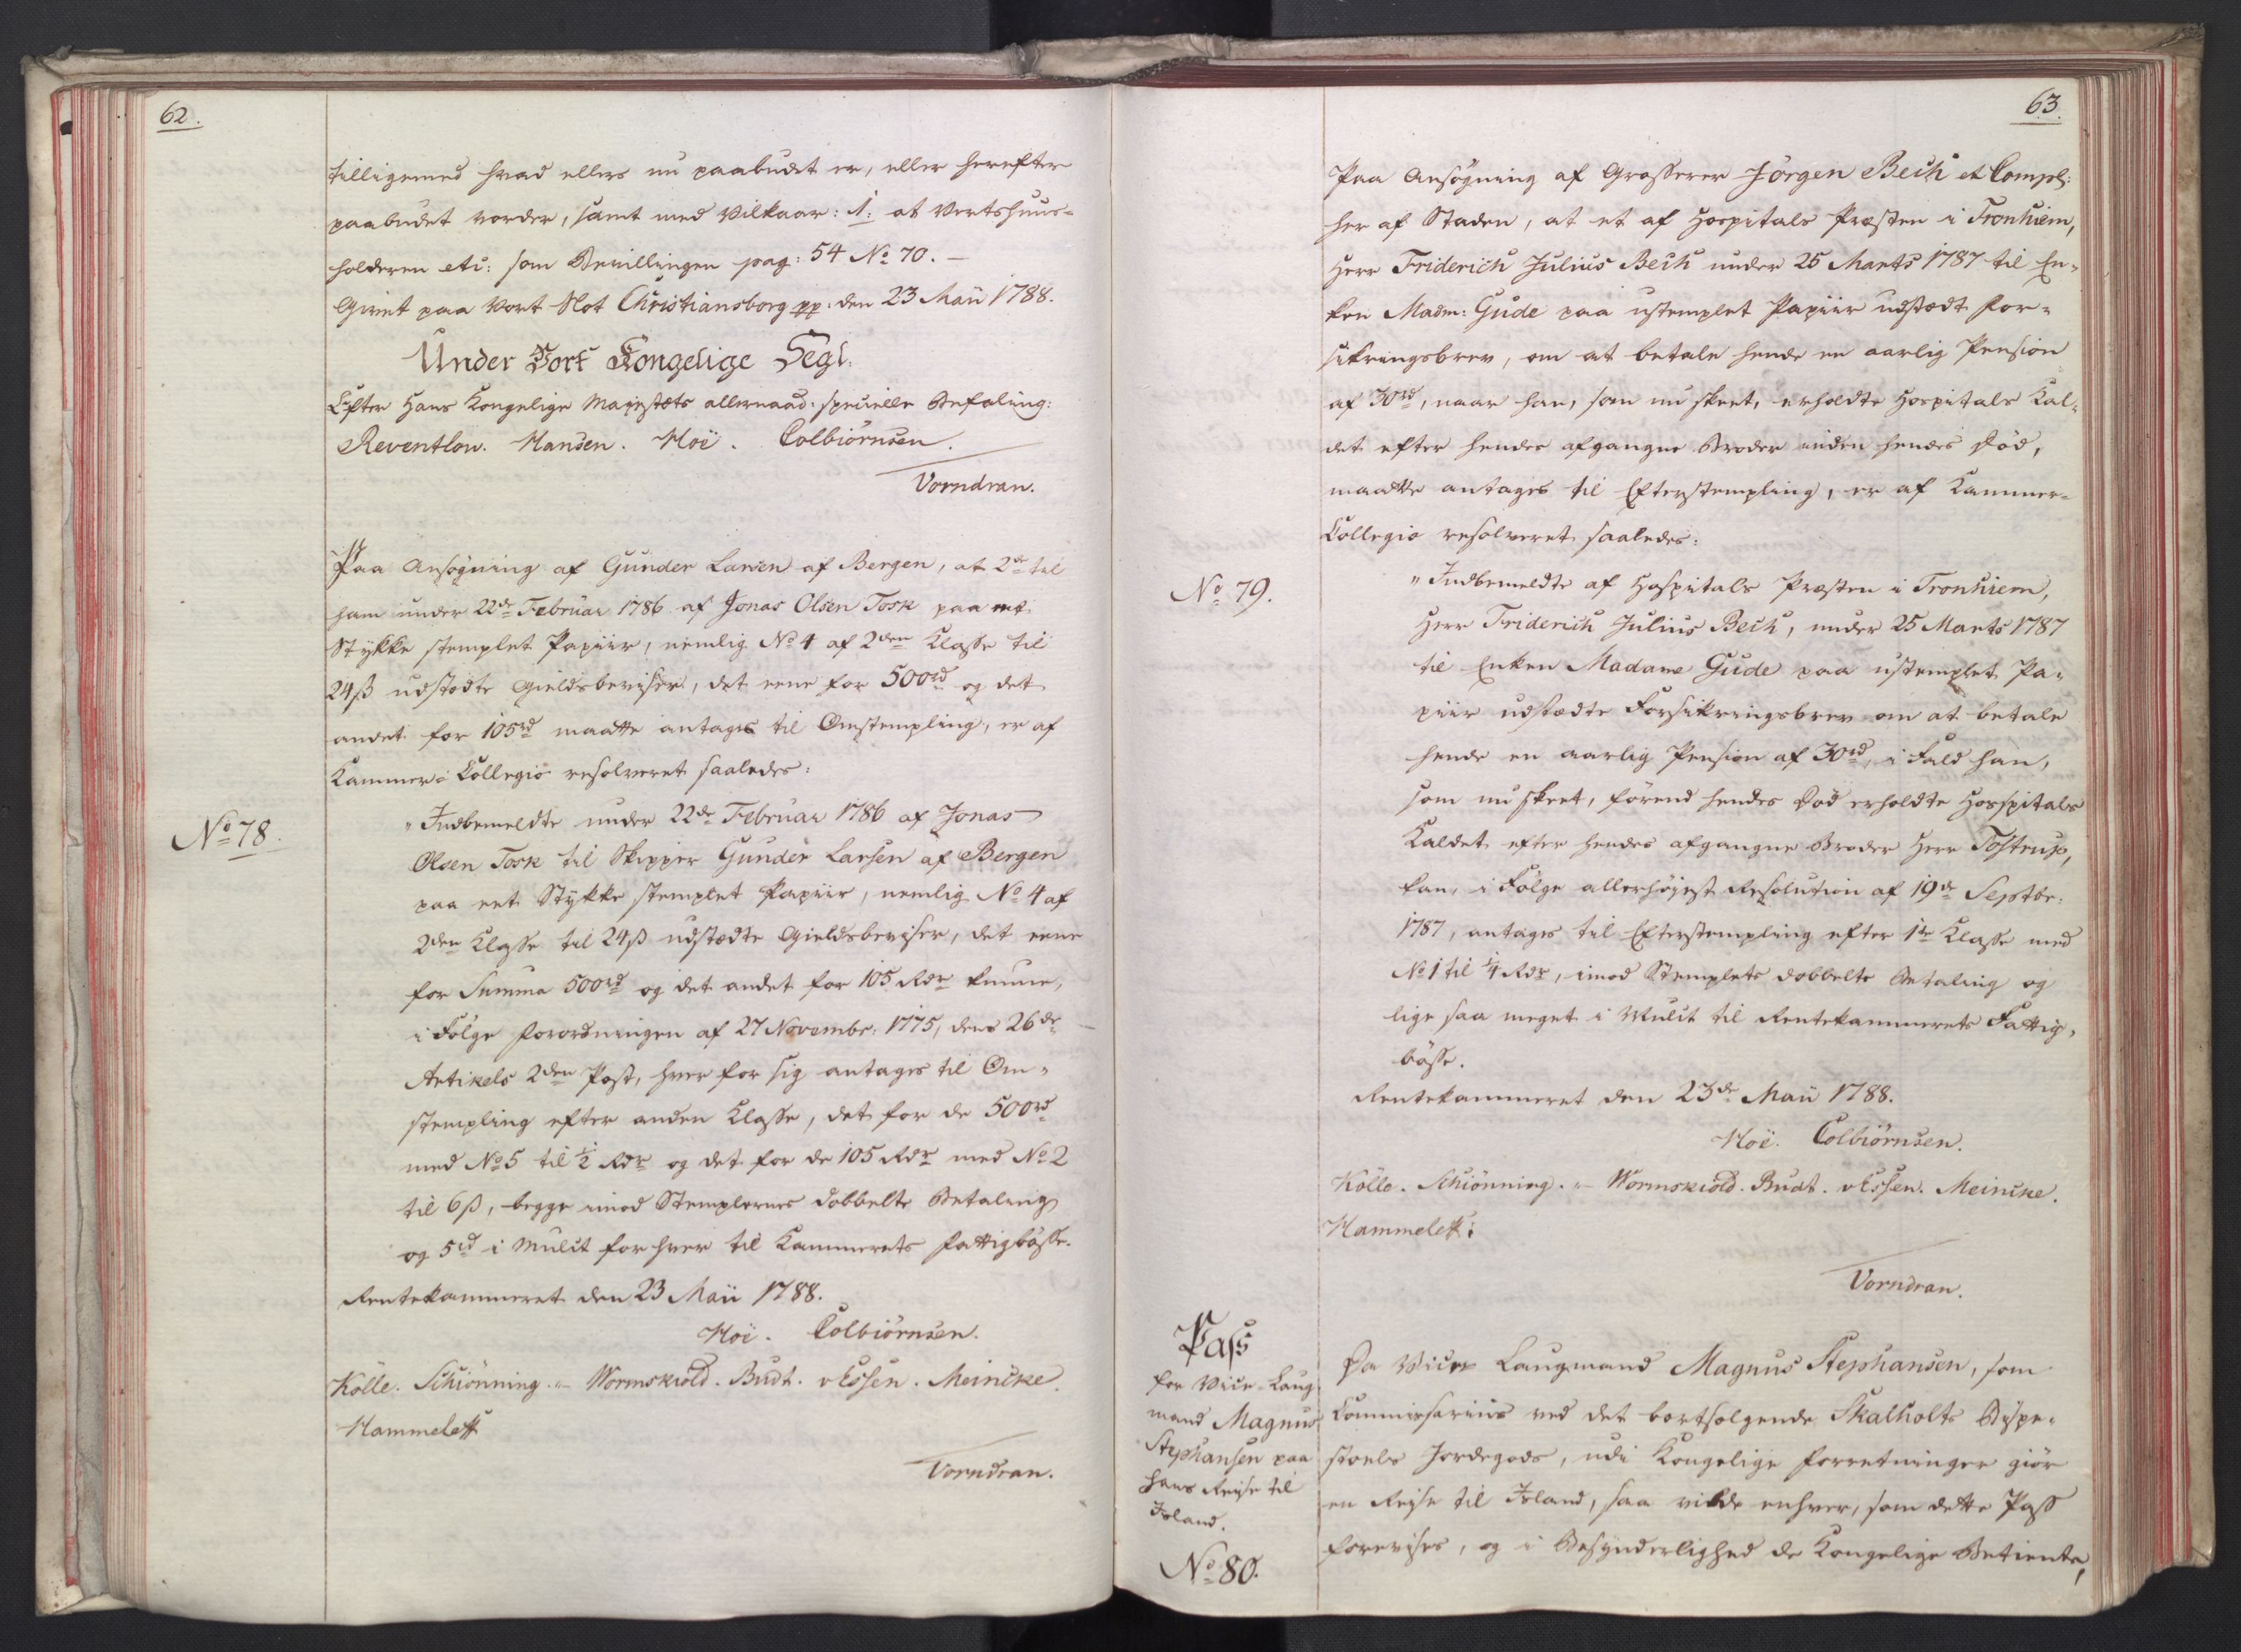 62.
tilligemed hvad ellers nu paabudet er, eller herefter
paabudet vorder, samt med Vilkaar: 1: at Vertshuus-
holderen etc: som Bevillingen pag: 54 No 70. —
Givet paa Vort Slot Christiansborg pp: den 23 Maii 1788.
Under Vort Kongelige Segl.
Efter Hans Kongelige Majestets allernaad: specielle Befaling:
Reventlow. Hansen. Hoë. Colbiörnsen.
Vorndran.
Paa Ansøgning af Gunder Larsen af Bergen, at 2de til
ham under 22de Februar 1786 af Jonas Olsen Tosk paa eet
Stykke stemplet Papiir, nemlig No 4 af 2den Classe til
24ß udstædte Gieldsbeviser, det eene for 500rd og det
andet for 105rd maatte antages til Omstempling, er af
Kammer-Collegio resolveret saaledes:
No 78.
"Indbemeldte under 22de Februar 1786 af Jonas
Olsen Tosk til Skipper Gunder Larsen af Bergen
paa eet Stykke stemplet Papiir, nemlig No 4 af
2den Classe til 24ß udstædte Gieldsbeviser, det eene
for Summa 500rd og det andet for 105 Rdr kunne,
i Følge Forordningen af 27 Novembr: 1775, dens 26de
Artikels 2den Post, hver for sig antages til Om-
stempling efter anden Classe, det for de 500rd
med No 5 til ½ Rdr og det for de 105 Rdr med No 2
til 6ß, begge imod Stemplernes dobbelte Betaling
og 5rd i Mulct for hver til Kammerets Fattigbøsse.
Rentekammeret den 23 Maii 1788.
Hoë. Colbiörnsen.
Kölle. Schiönning. — Wormskiold. Budt. v Essen. Meincke.
Hammeleff
Vorndran.
63.
Paa Ansøgning af Grosserer Jörgen Bech et Compl:
her af Staden, at et af Hospitals Præsten i Tronhiem,
Herr Friderich Julius Bech under 25 Marts 1787 til En-
ken Madm: Gude paa ustemplet Papiir udstædt For-
sikringsbrev, om at betale hende en aarlig Pension
af 30rd, naar han, som nu skeet, erholdte Hospitals Kal-
det efter hendes afgangne Broder inden hendes Død,
maatte antages til Efterstempling, er af Kammer-
Collegio resolveret saaledes:
No 79.
"Indbemeldte af Hospitals Præsten i Tronhiem,
Herr Friderich Julius Bech, under 25 Marts 1787
til Enken Madame Gude paa ustemplet Pa-
piir udstædte Forsikringsbrev om at betale
hende en aarlig Pension af 30rd, i Fald han,
som nu skeet, førend hendes Død erholdte Hospitals
Kaldet efter hendes afgangne Broder Herr Tostrup,
kan, i Følge allerhøjest Resolution af 19de Septbr:
1787, antages til Efterstempling efter 1te Classe med
No 1 til ¼ Rdr, imod Stemplets dobbelte Betaling og
lige saa meget i Mulct til Rentekammerets Fattig-
bøsse.
Rentekammeret den 23de Maii 1788.
Hoë. Colbiörnsen.
Kölle. Schiönning. — Wormskiold. Budt. v Essen. Meincke.
Hammeleff.
Vorndran.
Pass
for Vice-Laug
mand Magnus
Stephansen paa
hans Rejse til
Island.
No 80.
Da Vice Laugmand Magnus Stephansen, som
Commissarius ved det bortsolgende Skalholts Bispe-
stoels Jordegods, udi Kongelige Forretninger giør
en Rejse til Island, saa vilde enhver, som dette Pass
forevises, og i Besynderlighed de Kongelige Betiente,